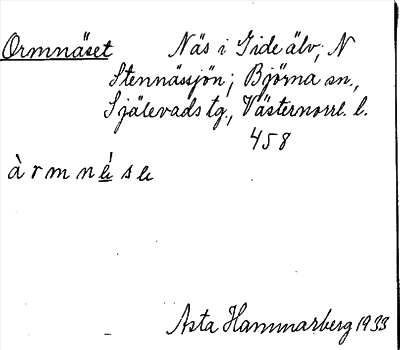 Ormnäset Näs i Gide älv, N
Stennässjön; Björna sn.,
Själevads tg., Västernorrl. l.
458
àrmnése
Asta Hammarberg 1933